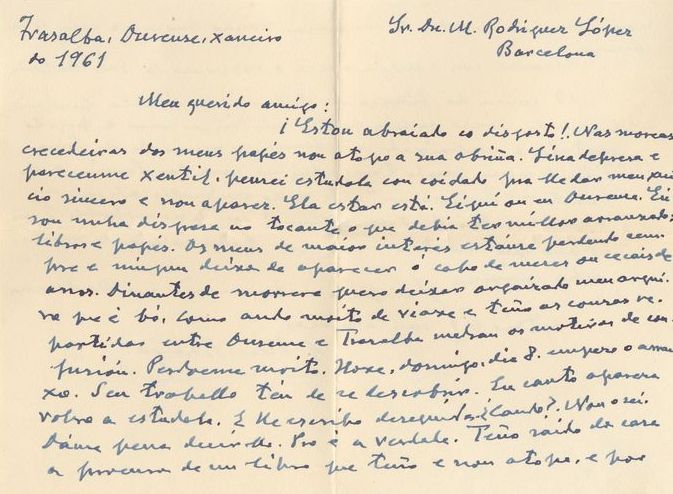 Trasalba, Ourense, xaneiro
do 1961
Sr. Dn. M. Rodríguez López
Barcelona
Meu querido amigo:
¡Estou abraiado co disgosto! Nas moreas
crecedeiras dos meus papés non atopo a sua obriña. Lina depresa e
pareceume xentil, pensei estudala con coidado pra lle dar meu xui
cio sincero e non aparez. Ela estar está. Eiquí ou en Ourense. Eu
sou unha disgrasa no tocante o que debia ter millor arranxado:
libros e papés. Os meus de maior interés estanse perdendo sem
pre e ningun deixa de aparecer ó cabo de meses ou cecais de
anos. Dinantes de morrere quero deixar organizado meu arqui
vo que é bó, como ando moito de viaxe e teño as cousas re
partidas entre Ourense e Trasalba medran os motivos de con
fusión. Perdoeme moito. Hoxe, domingo, dia 8. empezo o arran
xo. Seu traballo tén de se descobrir. En canto apareza
volvo a estudala. E lle escribo deseguida. ¿Cando?. Non o sei.
Dáme pena decirllo. Pro é a verdade. Teño saído da casa
a procura de un libro que teño e non atopo, e por